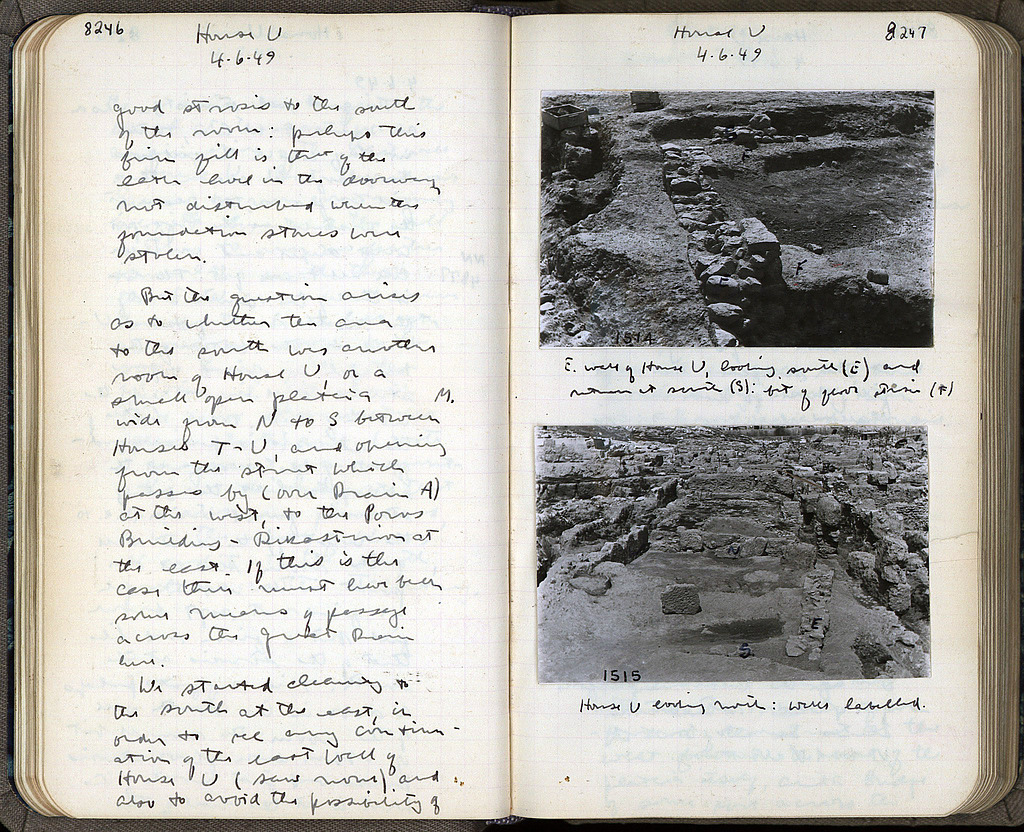 8246
House U
4·6·49
good strosis to the south
of the room: perhaps this
firm fill is that of the
later level in the doorway
not disturbed when the
foundation stones were
stolen.
But the question arises
as to whether the area
to the south was another
room of House U, or a
small open plateia M.
wide from N to S between
Houses T-U, and opening
from the street which
passes by (over Drain A)
at the west, to the Poros
Building - Dikasterion at
the east. If this is the
case there must have been
some means of passage
across the great Drain
here.
We started cleaning to
the south at the east, in
order to see any continu-
ation of the east wall of
House U (saw none) and
also to avoid the possibility of
House U
4·6·49
8247
F
1514
E. wall of House U, looking south (E) and
return at south (S): bit of floor (F)
N
E
S
1515
House U looking north: walls labelled.